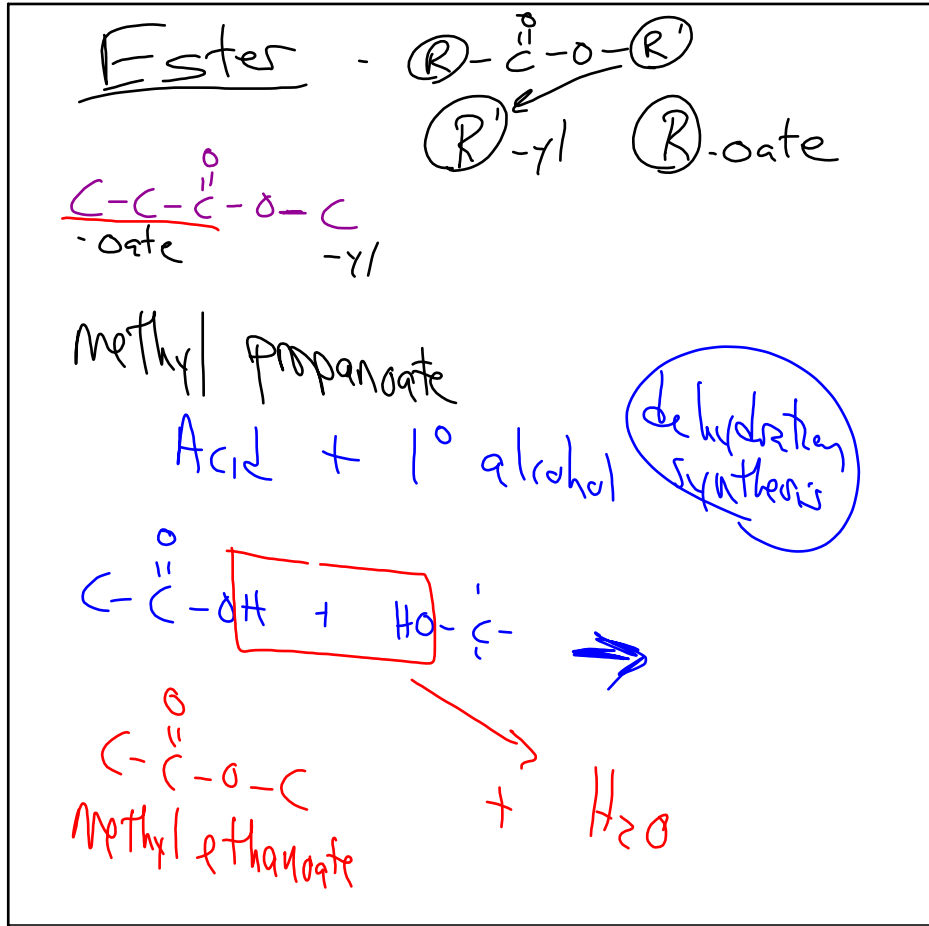 Ester - R-C-O-R'
O
||
R'-yl R-oate
O
||
C-C-C-O-C
-oate -yl
methyl propanoate
Acid + 1° alcohol
dehydration
synthesis
O
||
C-C-OH + HO-C-
O
||
C-C-O-C
+ H2O
Methyl ethanoate